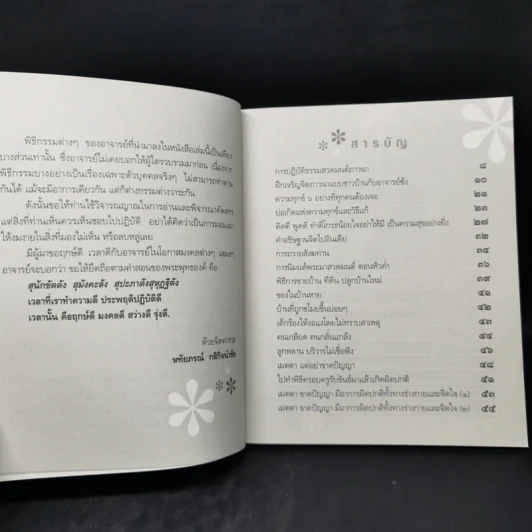 พิธีกรรมต่างๆ ของอาจารย์ที่นำมาลงในหนังสือเล่มนี้เป็นเพียง
บางส่วนเท่านั้น ซึ่งอาจารย์ไม่เคยบอกให้ผู้ใดรวบรวมมาก่อน เนื่องจาก
พิธีกรรมบางอย่างเป็นเรื่องเฉพาะตัวบุคคลจริงๆ ไม่สามารถทำตาม
กันได้ แม้จะมีอาการเดียวกัน แต่ก็ต่างกรรมต่างวาระกัน
ดังนั้นขอให้ท่านใช้วิจารณญาณในการอ่านและพิจารณาคัดสรร
แต่สิ่งที่ท่านเห็นควรเห็นชอบไปปฏิบัติ อย่าได้คิดว่าเป็นการมอมเมา
ให้งมงายในสิ่งที่มองไม่เห็น หรือลบหลู่เลย
มีผู้มาขอฤกษ์ดี เวลาดีกับอาจารย์ในโอกาสมงคลต่างๆ เสมอๆ
อาจารย์จะบอกว่า ขอให้ยึดถือตามคำสอนของพระพุทธองค์ คือ
สุนักขัตตัง สุมังคะลัง สุปะภาตังสุหุฏฐิตัง
เวลาที่เราทำความดี ประพฤติปฏิบัติดี
เวลานั้น คือฤกษ์ดี มงคลดี สว่างดี รุ่งดี.
ด้วยจิตคารวะ
หทัยภรณ์
สารบัญ
การปฏิบัติธรรมสวดมนต์ภาวนา ๘
ฝึกเจริญจิตภาวนาแบบชาวบ้านกับอาจารย์ซัง ๑๐
ความทุกข์ ๔ อย่างที่ทุกคนต้องเจอ ๒๑
บ่อเกิดแห่งความทุกข์และวิธีแก้ ๒๓
คิดดี พูดดี ทำดีโกรธน้อยใจอย่าให้มี เป็นความสุขอย่างยิ่ง ๒๗
คำอธิษฐานจิตไปอินเดีย ๓๒
การถวายสังฆทาน ๓๔
การนิมนต์พระมาสวดมนต์ ตอนหัวค่ำ ๓๖
พิธีการขายบ้าน ที่ดิน ปลูกบ้านใหม่ ๓๙
ของในบ้านหาย ๔๑
บ้านที่ถูกขโมยขึ้นบ่อยๆ ๔๒
เด็กร้องไห้งอแงโดยไม่ทราบสาเหตุ ๔๓
คนเกลียด คนกลั่นแกล้ง ๔๔
ลูกหลาน บริวารไม่เชื่อฟัง ๔๖
เมตตา แต่อย่าขาดปัญญา ๔๘
ไปทำพิธีครอบครูรับขันธ์มาแล้วเกิดผิดปกติ ๕๑
เมตตา ขาดปัญญา มีอาการผิดปกติทั้งทางร่างกายและจิตใจ (๑) ๕๔
เมตตา ขาดปัญญา มีอาการผิดปกติทั้งทางร่างกายและจิตใจ (๒) ๕๕